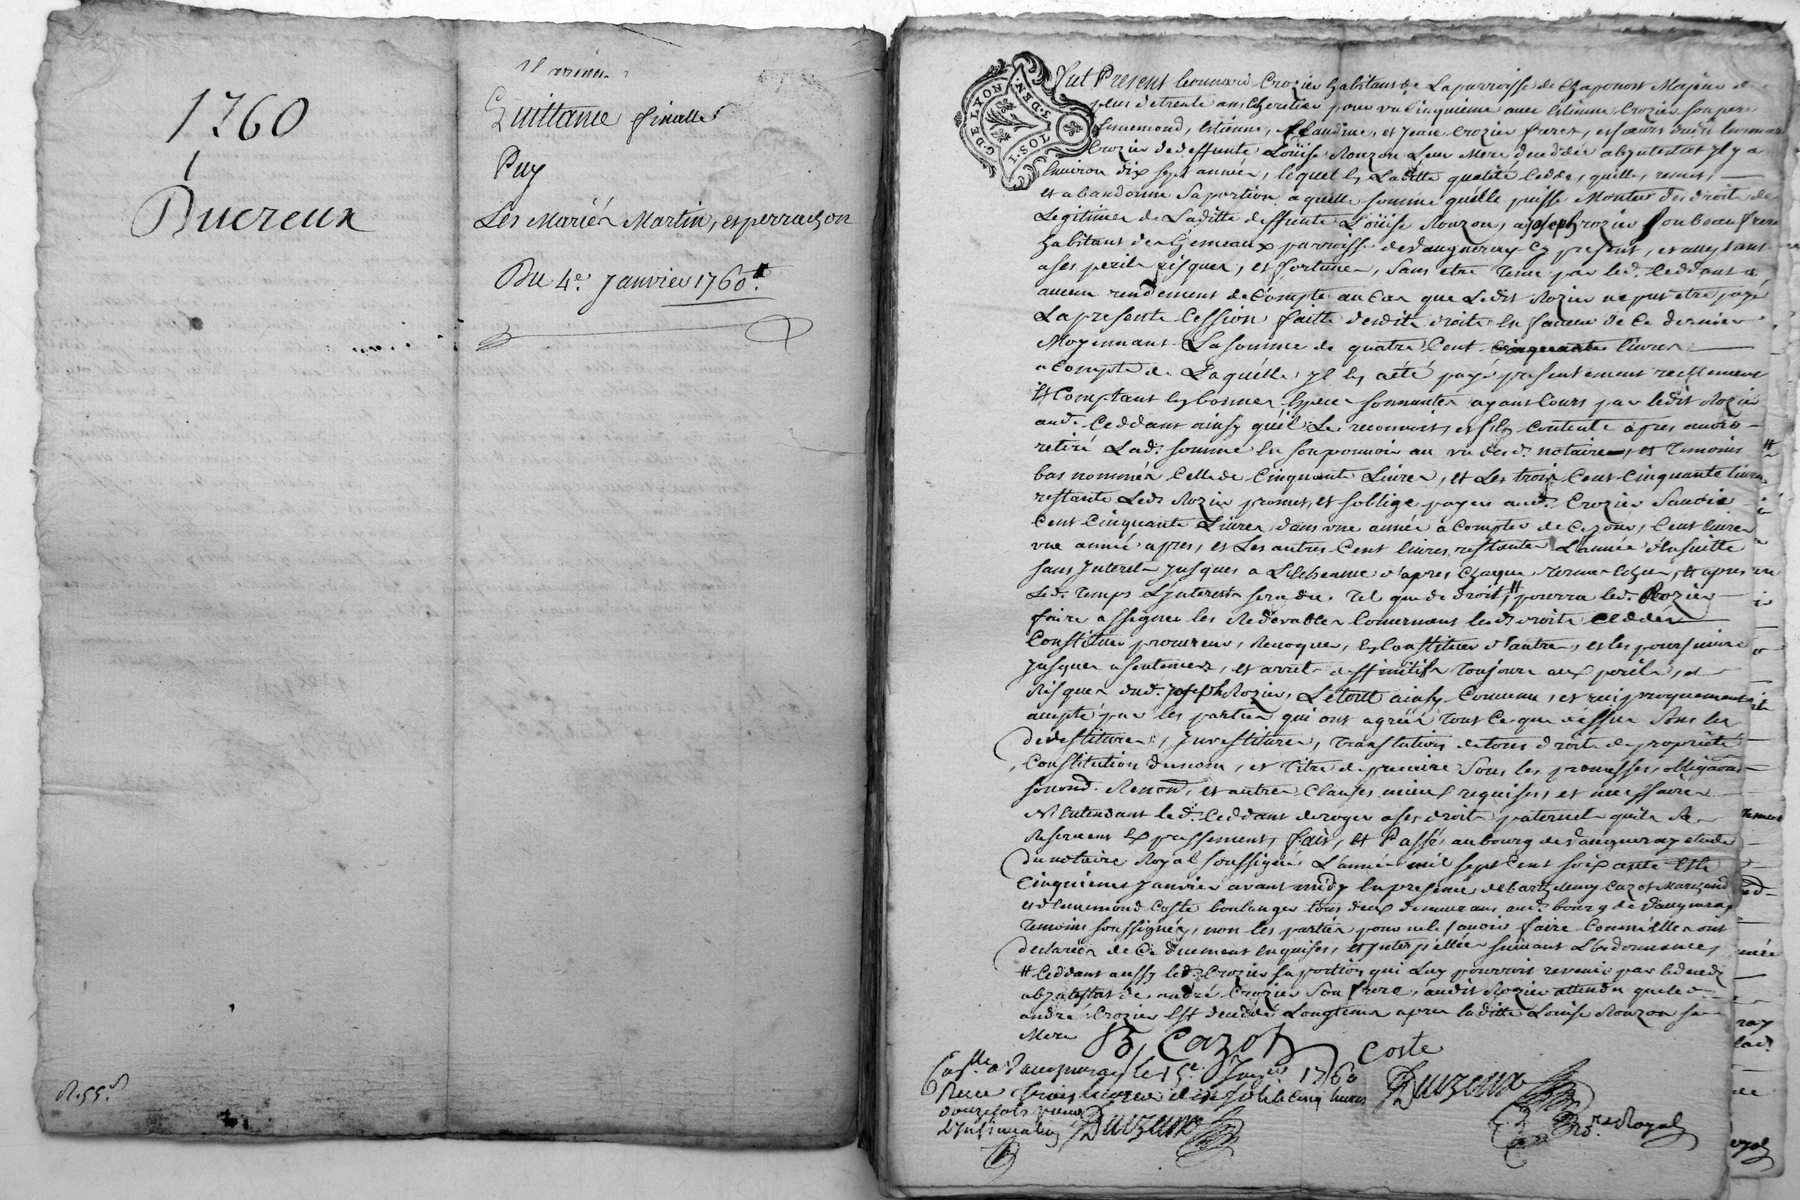 1760
Ducreux
Quittance finalle
Puy
Les Mariés Martin, et perrachon
Du 4e. Janvier 1760.
R. 55 s
G. DE LYON
2. S. DEN.
TOS. I.
Fut Present Leonnard Crozier habitant de La parroisse de Chaponost Majeur de
plus de trente ans heretier pour un Cinquieme avec Etienne Crozier son pere
Ennemond, Etienne, Claudine, et Jean Crozier freres, et soeurs dudit Leonnard
Crozier de deffunte Loüise Rouzon Leur Mere decedée abintestat il y a
Environ dix sept années, lequel en Laditte qualité Cedde, quitte, remet,
et abandonne sa portion, a quelle somme qu'elle puisse Monter des droits de
Legitimes de Laditte deffunte Loüise Rouzon, a Joseph Rozier son beau frere
habitant des Gemeaux parroisse de Vaugneray Cy present, et acceptant
a ses perils risques, et fortunes, sans etre tenu par led. Ceddant a
aucun rendement de Compte au Cas que Ledit Rozier ne put etre payé
La presente Cession faitte desdits droits en faveur de Ce dernier
Moyennant La somme de quatre Cent livres
a Compte de Laquelle il en a été payé presentement reellement
Et Comptant en bonnes Especes sonnantes ayant Cours par ledit Rozier
aud. Ceddant ainsy qu'il Le reconnoit, et s'en Contente apres avoir
retiré Lad. somme en son pouvoir au vu desd. notaire, et temoins
bas nommés Celle de Cinquante Livres, et Les trois Cent Cinquante livres
restante Led. Rozier promet, et s'oblige payer aud. Crozier Savoir
Cent Cinquante Livres dans une année a Compter de Ce jour, Cent livres
une année apres, et Les autres Cent livres restantes L'année Ensuitte
sans Interets Jusques a L'Echeance d'apres Chaque terme Echu, Et apres
Led. temps L'Interest sera du tel que de droit, # pourra led. Rozier
faire assigner les Redevables Concernant lesd. droits Ceddés
Constituer procureur, Revoquer, En Constituer d'autres, et les poursuivre
Jusques a sentences, et arrets deffinitifs toujours aux perils, et
Risques dud. Joseph Rozier, Le tout ainsy Convenu, et reciproquement
accepté par les parties qui ont agréés tout Ce que dessus Sous les
devestitures, Investitures, translations de tous droits de proprieté
Constitution de nom, et titre de precaire Sous les promesses, obligaõns
soumõns. Renonõns, et autres Clauses mieux requises et necessaires
N'Entendant led. Ceddant deroger a ses droits paternels qu'il Se
Reservent Expressement, fait, et Passé au bourg de Vaugneray etude
du notaire Royal soussigné L'année mil sept Cent soixante Et le
Cinquieme Janvier avant midy En presence de Barthelemy Cazot Marchand
et d'Ennemond Coste boulanger tous deux demeurans aud. bourg de Vaugneray
temoins soussignés, non les parties pour ne le savoir faire Comm'elles ont
declarées de Ce duement Enquises, et Interpellées suivant L'ordonnance,
# Ceddant aussy led. Crozier sa portion qui Luy pourroit revenir par le decedz
abintestat de andré Crozier Son frere, audit Rozier attendu que led.
andré Crozier Est decedé Longtems apres laditte Louise Rouzon sa
Mere
B, Cazot
Coste
Con.lle a Vaugneray le 15e. Janvier 1760
Receu trois livres dix sols Cinq livres
douze sols pour
L'Insinuation
Ducreux
Ducreux
no.re Royal